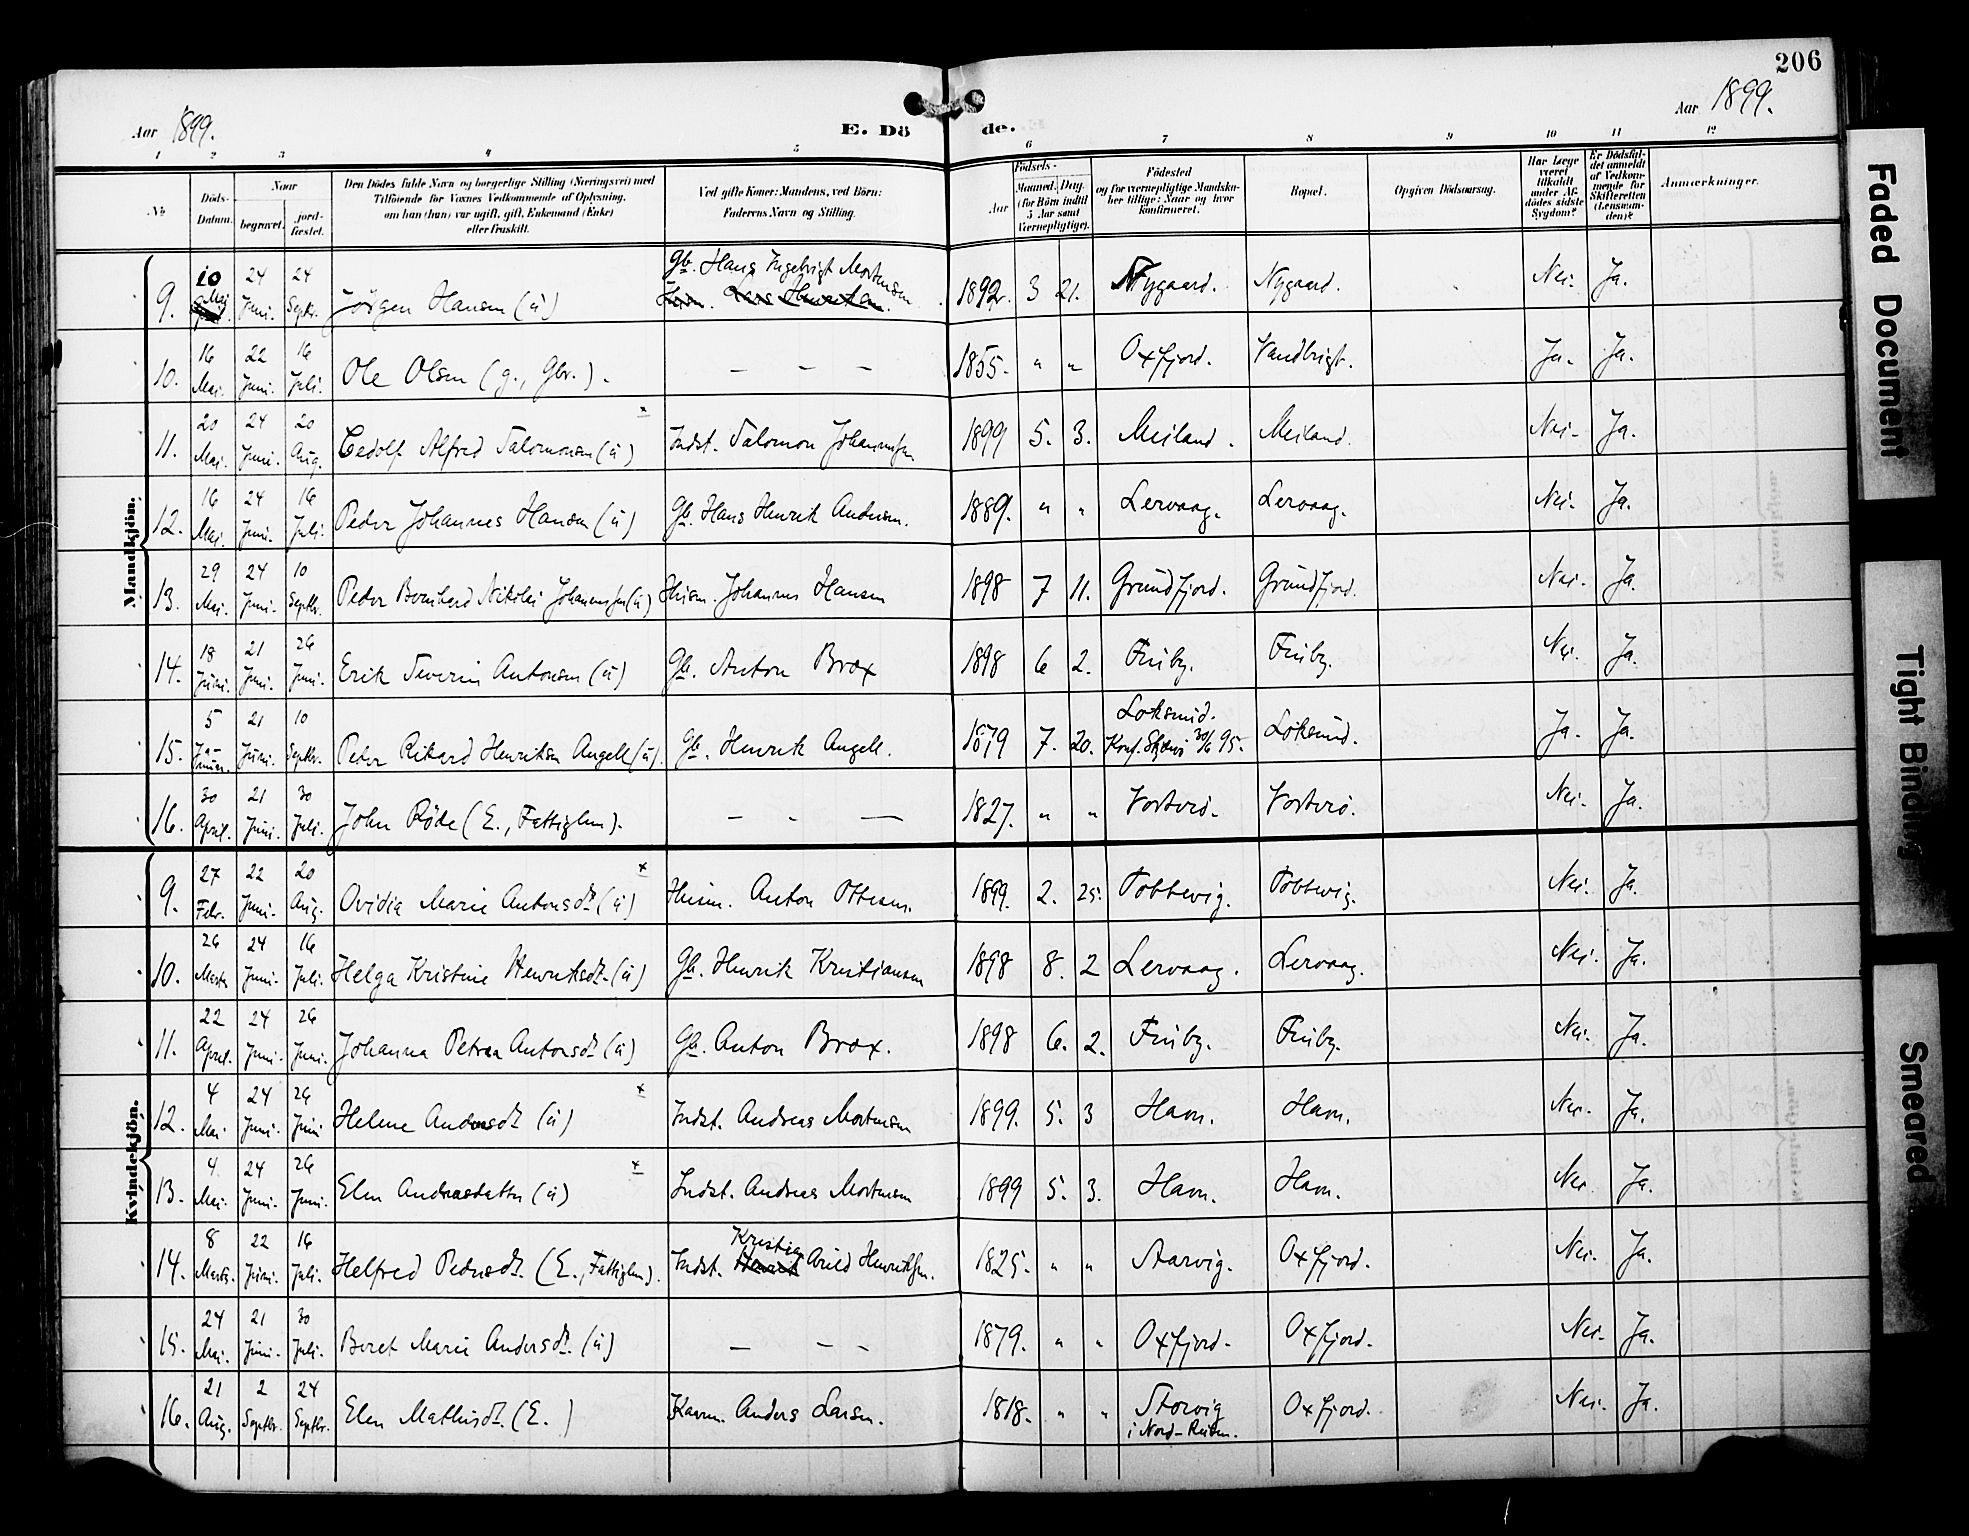 206
Aar 1899.
E. Dö de.
Aar 1899.
1 2 3 4 5 6 7 8 9 10 11 12
No
Döds-Datum.
Naar
begravet.
jord-fæstet.
Den Dödes fulde Navn og borgerlige Stilling (Næringsvei) med
Tilföiende for Voxnes Vedkommende af Oplysning,
om han (hun) var ugift, gift, Enkemand (Enke)
eller fraskilt.
Ved gifte Koner: Mandens, ved Börn:
Faderens Navn og Stilling.
Födsels-
Aar
Maaned. Dag.
(for Börn indtil
5 Aar samt
Værnepligtige).
Födested
og for værnepligtige Mandska-
ber tillige: Naar og hvor
konfirmeret.
Bopæl.
Opgiven Dödsaarsag.
Har Læge
været
tilkaldt
under Af-
dödes sidste
Sygdom?
Er Dödsfal-
det anmeldt
af Vedkom-
mende for
Skifteretten
(Lensman-
den)?
Anmærkninger.
Mandkjön.
9. 10 Mai 24 Juni. 24 Septbr. Jörgen Hansen (ú) Gb. Hans Ingebrigt Mortensen 1892. 3 21. Nygaard. Nygaard. Nei. Ja.
10. 16 Mai. 22 Juni. 16 Juli. Ole Olsen (g., Gbr.). — — — 1855. " " Oxfjord. Vandbrigt. Ja. Ja.
11. 20 Mai. 24 Juni. 20 Aug. Cedolf Alfred Salomonsen (ú) x Indst. Salomon Johannessen 1899 5. 3. Meiland. Meiland. Nei. Ja.
12. 16 Mai. 24 Juni. 16 Juli. Peder Johannes Hansen (ú) Gb. Hans Henrik Andersen. 1889. " " Lervaag. Lervaag. Nei. Ja.
13. 29 Mai. 24 Juni. 10 Septbr. Peder Bernhard Nikolai Johannessen (ú) Huism. Johannes Hansen 1898 7 11. Grundfjord. Grundfjord. Nei. Ja.
14. 18 Juni. 21 Juni. 26 Juni. Erik Severin Antonsen (ú) Gb. Anton Brox 1898 6 2. Finby. Finby. Nei. Ja.
15. 5 Januar. 21 Juni. 10 Septbr. Peder Rikard Henriksen Angell (ú). Gb. Henrik Angell. 1879 7. 20. Loksund. Konf. Skjervø 30/6 95. Loksund. Ja. Ja.
16. 30 April. 21 Juni. 30 Juli. John Röde (E., Fattiglem). — - — 1827. " " Vorterö. Vorterö. Nei. Ja.
Kvindekjön.
9. 27 Febr. 22 Juni. 20 Aug. Ovidia Marie Antonsdtr (ú) x Huism. Anton Ottesen. 1899. 2. 25. Tobbevig. Tobbevig. Nei. Ja.
10. 26 Marts 24 Juni. 16 Juli. Helga Kristine Henriksdtr. (ú) Gb. Henrik Kristiansen 1898 8. 2 Lervaag. Lervaag. Nei. Ja.
11. 22 April. 24 Juni. 26 Juni. Johanna Petrea Antonsdtr (ú) Gb. Anton Brox. 1898 6. 2. Finby. Finby. Nei. Ja.
12. 4 Mai. 24 Juni. 26 Juni Helene Andreasdtr (ú) x Indst. Andreas Mortensen 1899. 5. 3 Havn. Havn. Nei. Ja.
13. 4. Mai. 24 Juni. 26 Juni. Elen Andreasdatter (ú) x Indst. Andreas Mortensen 1899 5. 3. Havn. Havn. Nei Ja.
14. 8 Marts. 22 Juni. 16 Juli. Helfred Pedersdtr. (E., Fattiglem). Indst. Kristian Arild Henriksen. 1825. " " Aarvig. Oxfjord. Nei. Ja.
15. 24 Mai. 21 Juni. 30 Juli. Beret Marie Andersdtr. (ú) — - - 1879. " " Oxfjord. Oxfjord. Nei. Ja.
16. 21 Aug. 2 Septbr. 24 Septbr. Elen Mathisdtr. (E. ) Anders Larsen. 1818. " " Storvig i Nord-Reisen. Oxfjord. Nei. Ja.
Faded Document
Tight Binding
Smeared